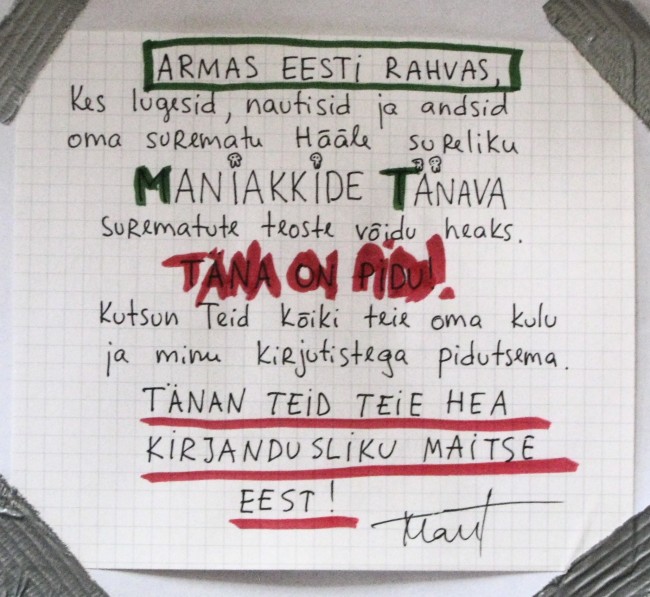 ARMAS EESTI RAHVAS,
Kes lugesid, nautisid ja andsid
oma surematu Hääle sureliku
MANIAKKIDE TÄNAVA
surematute teoste võidu heaks.
TÄNA ON PIDU!
Kutsun Teid kõiki teie oma kulu
ja minu kirjutistega pidutsema.
TÄNAN TEID TEIE HEA
KIRJANDUSLIKU MAITSE
EEST!